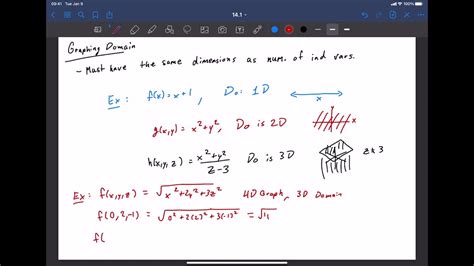 09:41 Tue Jan 9
14.1
Graphing Domain
- Must have the same dimensions as num. of ind vars.
Ex: f(x) = x + 1, Do: 1D
x
g(x,y) = x² + y², Do is 2D
h(x,y,z) = x² + y² / z - 3 Do is 3D
Ex: f(x,y,z) = √x² + 2y² + 3z² 4D Graph, 3D Domain
f(0,2,-1) = √0² + 2(2)² + 3(-1)² = √11
f(